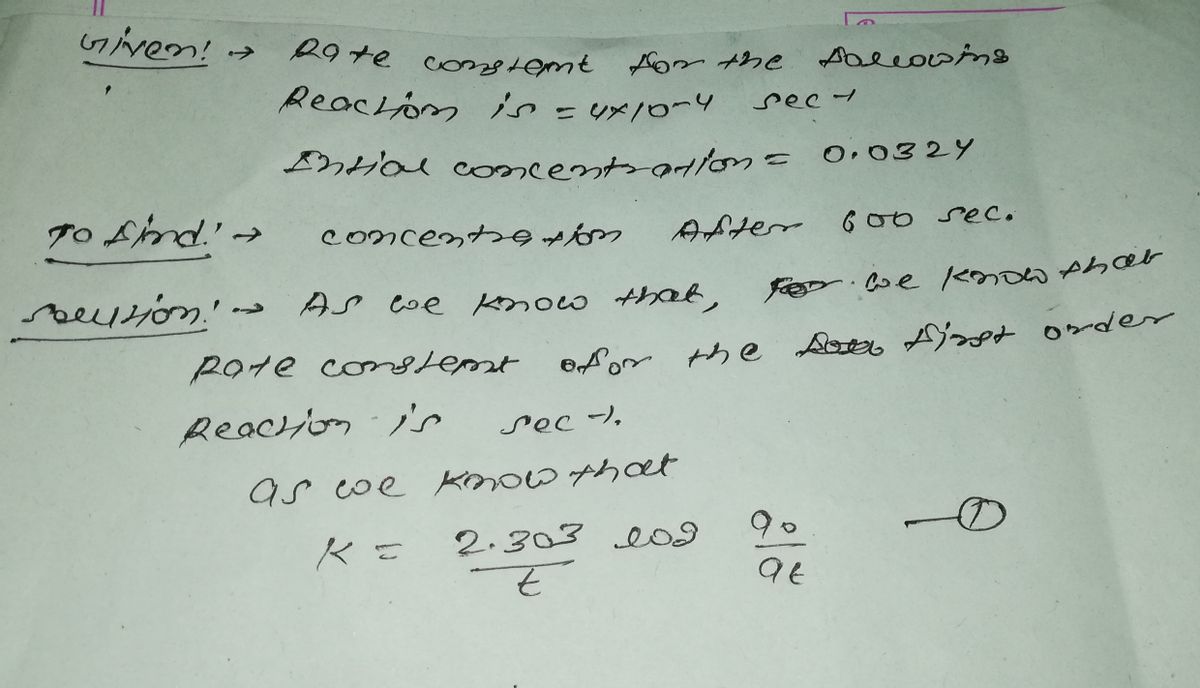 Given! → Rate constant for the following
Reaction is = 4×10-4 sec-1
Intial concentration = 0.0324
To find! → concentration After 600 sec.
Solution! → As we know that, we know that
Rate constant ofor the first order
Reaction is sec-1.
as we know that
K = 2.303/t log a0/at —①